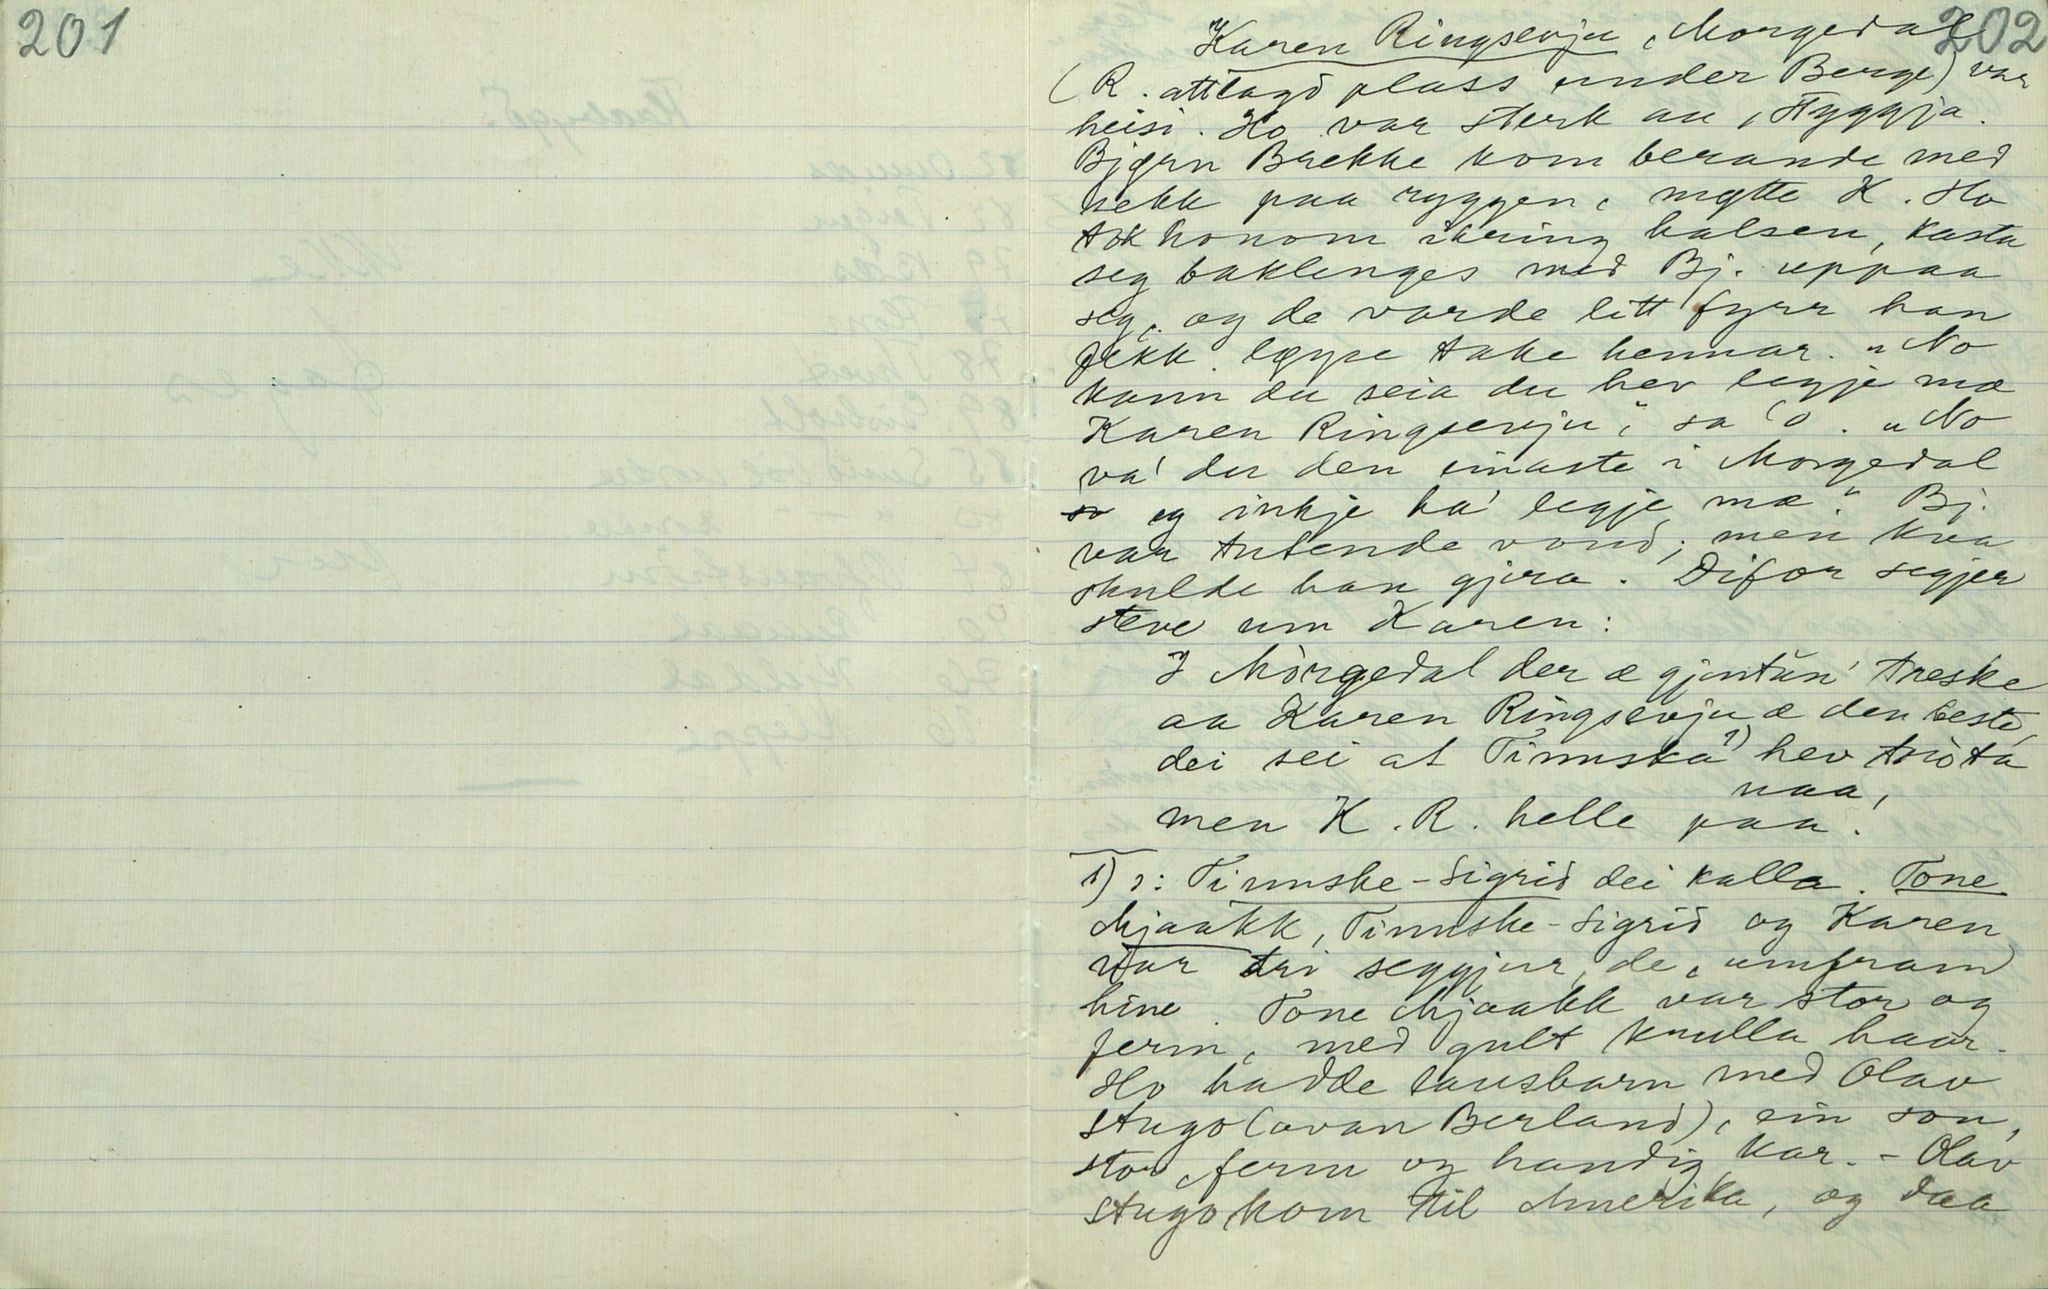 201
202
Karen Ringsevju, Morgedal
(R. attlagd plass under Berge) var
heisi. Ho var sterk au, Styggja.
Bjørn Brekke kom berande med
sekk paa ryggen, møtte K. Ho
tok honom ikring halsen, kasta
seg baklenges med Bj. uppaa
seg, og de varde litt fyrr han
fekk løyse take hennar. „No
kann du seia du hev legje mæ
Karen Ringsevju", sa 'o. „No
va' du den einaste i Morgedal
so eg inkje ha' legje mæ." Bj.
var tutende vond; men kva
skulde han gjera. Difor segjer
steve um Karen:
I Mòrgedal der æ gjentun' treske
aa Karen Ringsevju æ den beste,
dei sei at Tinnska 1) hev tsòta
naa,
men K. R. helle paa.
1) ɔ: Tinnske-Sigrid dei kalla. Tone
Mjaakk, Tinnske-Sigrid og Karen
var tri seggjur, de, umfram
hine. Tone Mjaakk var stor og
ferm, med gult krulla haar.
Ho hadde lausbarn med Olav
Stugo (ovan Berland), ein son,
stor, ferm og handig kar. - Olav
Stugo kom til Amerika, og daa